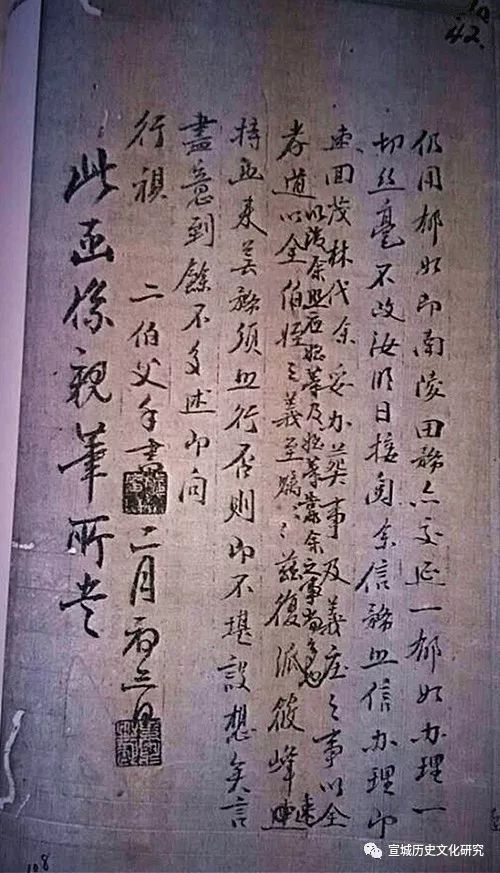 42
仍用郁如即南陵田務亦交延一郁如办理一
切丝毫不改汝明日接到余信務照信办理即
速回茂林代余妥办葬事及義庄之事以全
以後余照应
孝道以全伯姪之義至嘱々茲復派筱峰速
持函来芜務須照行否則即不堪設想矣言
盡意到餘不多述即问
行祺 二伯父手書 二月初三日
此函係親筆所书
108
宣城历史文化研究